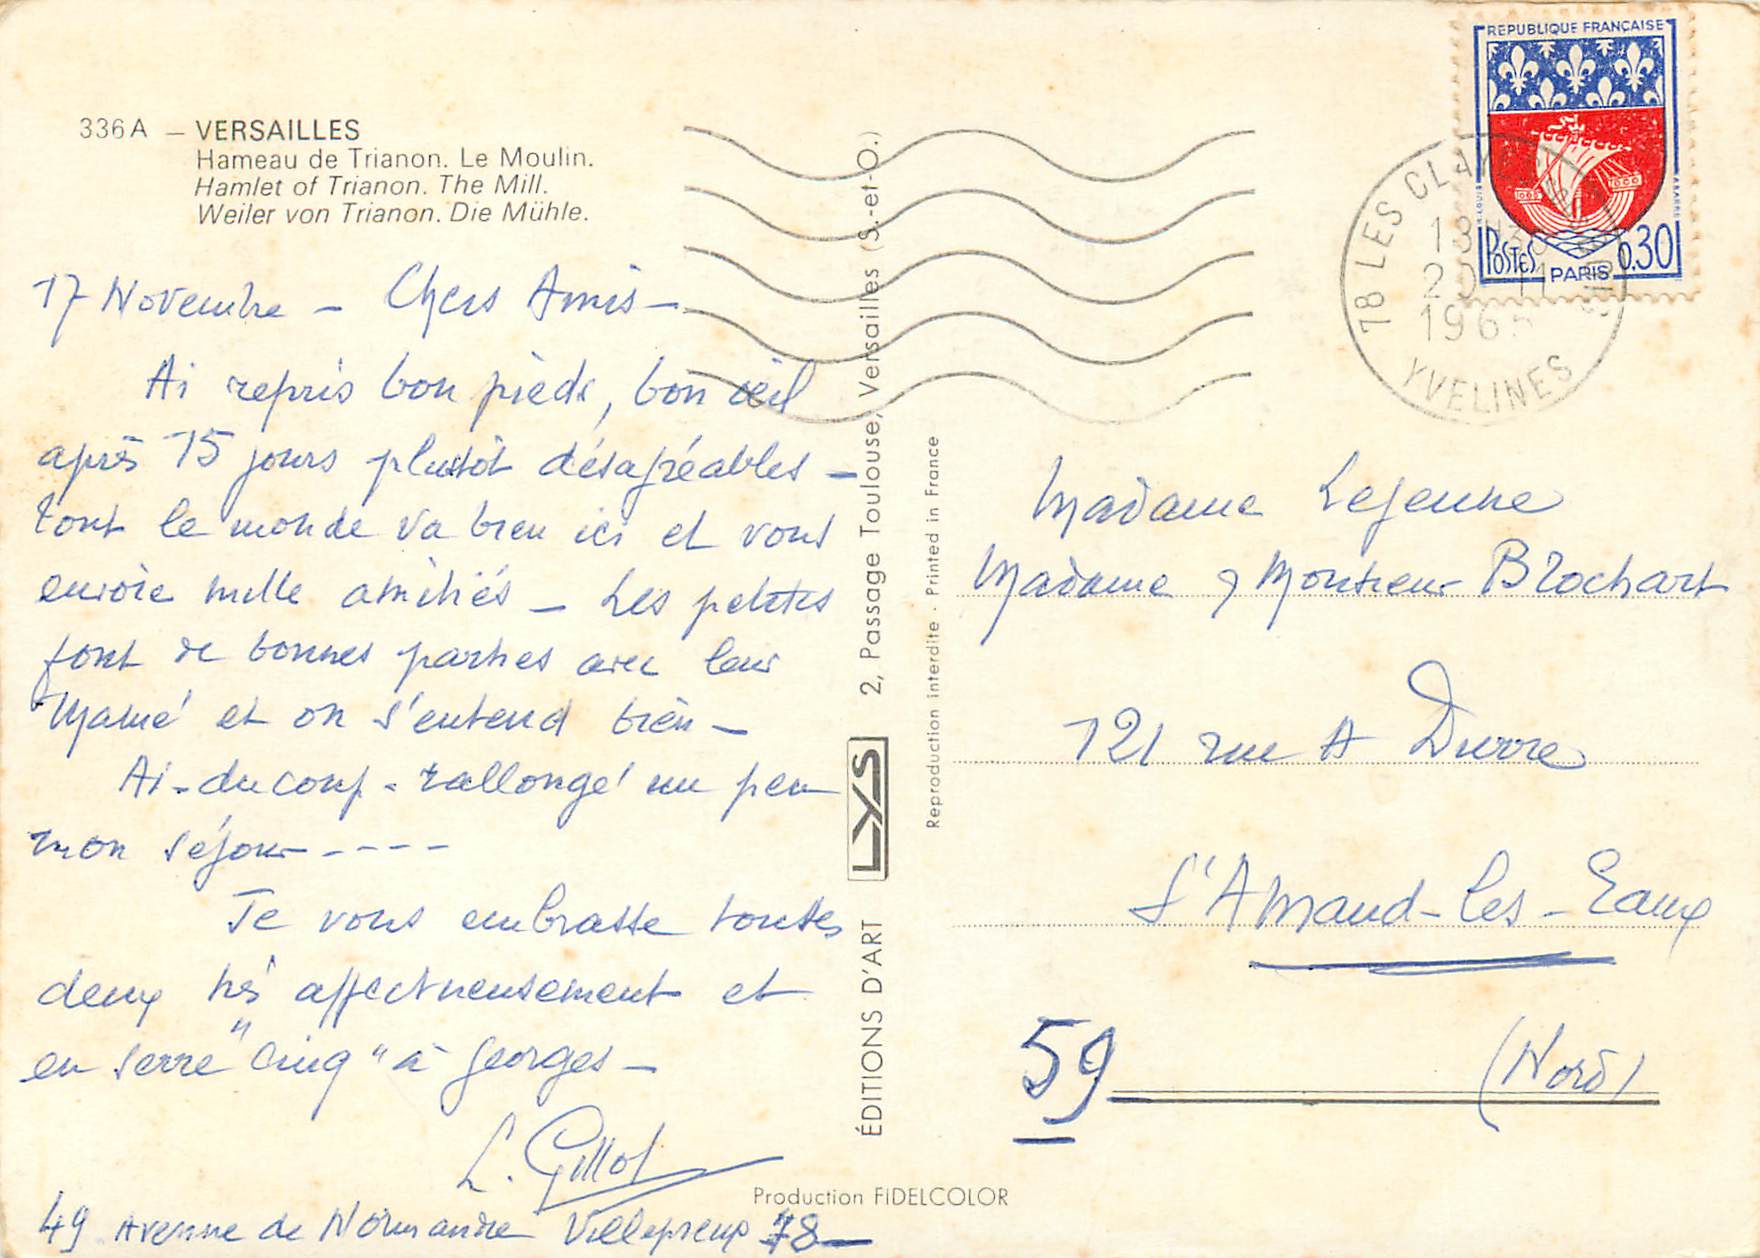 336A – VERSAILLES
Hameau de Trianon. Le Moulin.
Hamlet of Trianon. The Mill.
Weiler von Trianon. Die Mühle.
17 Novembre – Chers Amis –
Ai repris bon pied, bon œil
après 15 jours plutôt désagréables –
tout le monde va bien ici et vous
envoie mille amitiés – Les petites
font de bonnes parties avec leur
Mamé et on s'entend bien –
Ai-du coup-rallongé un peu
mon séjour ----
Je vous embrasse toutes
deux très affectueusement et
en serre "cinq" à Georges –
L. Gillot
49 Avenue de Normandie Villepreux 78
ÉDITIONS D'ART LYS 2, Passage Toulouse, Versailles (S.-et-O.)
Reproduction interdite - Printed in France
Production FIDELCOLOR
REPUBLIQUE FRANÇAISE
POSTES 0,30
PARIS
78 LES CLAYES
18H30
20-11
196
YVELINES
Madame Lejeune
Madame & Monsieur Brochart
121 rue H Durre
St Amand-les-Eaux
59 (Nord)